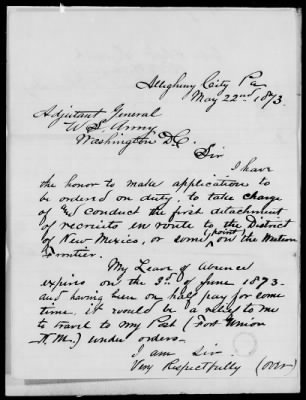 Allegheny City Pa
May 22nd 1873.
Adjutant General
U.S. Army
Washington D.C.
Sir
I have
the honor to make application to
be ordered on duty, to take charge
of and conduct the first detachment
of recruits en route to the District
of New Mexico, or some (point) on the Western
Frontier.
My Leave of absence
expires on the 3rd of June 1873
and having been on half pay for some
time it would be a relief to me
to travel to my Post (Fort Union
N.M.) under orders.
I am Sir
Very Respectfully (over)